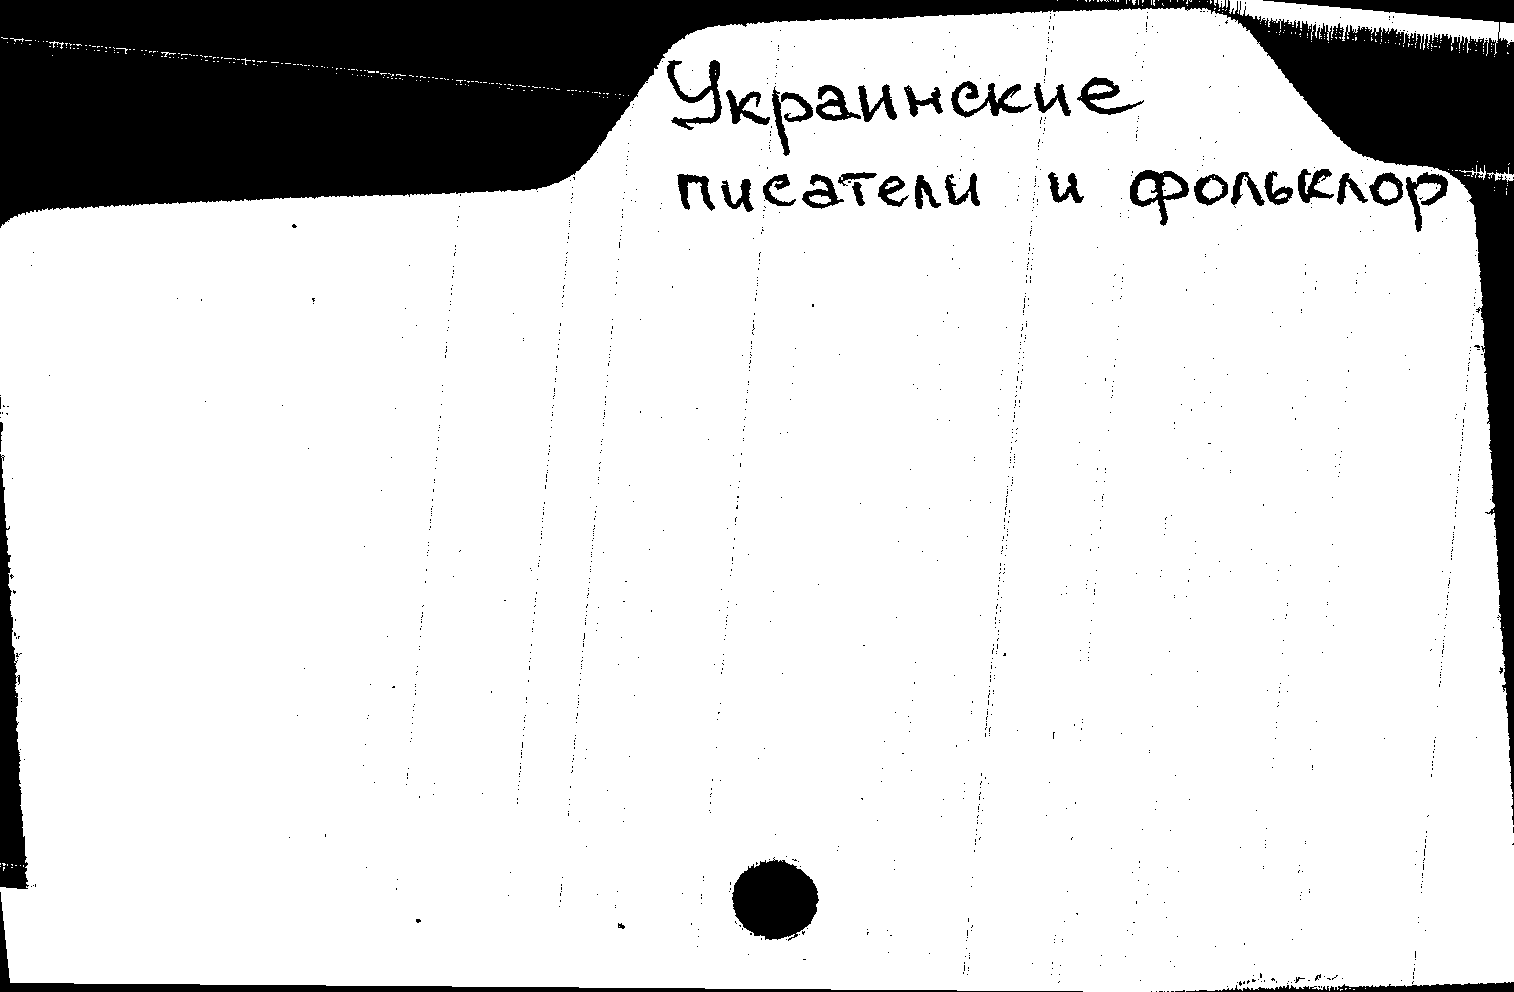 Украинские
писатели и фольклор